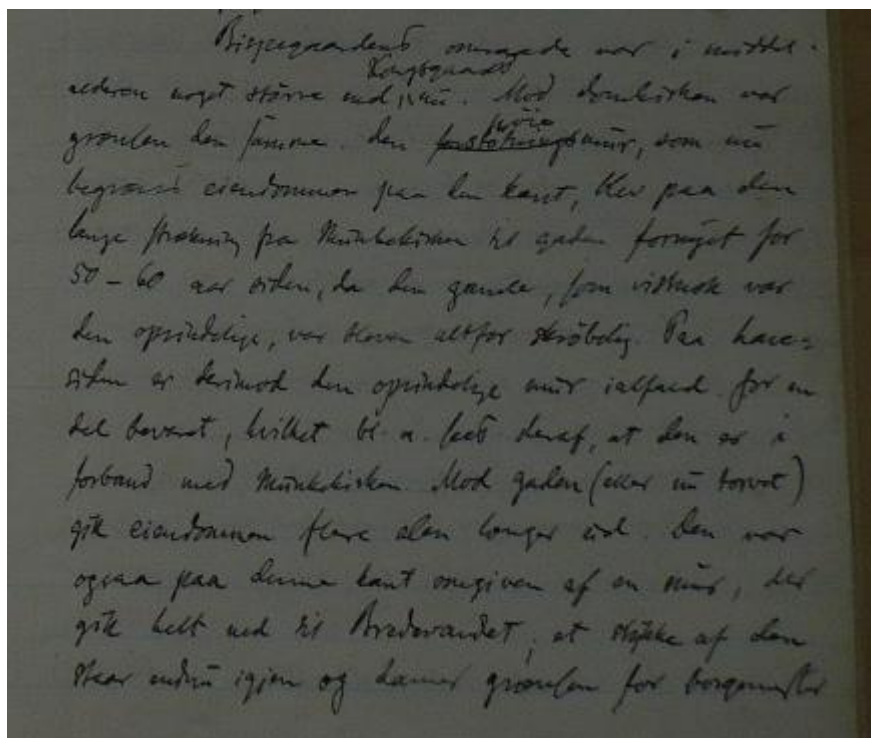 Bispegaardens omraade var i middel-
alderen noget större end Kongsgaards nu. Mod domkirken var
grænsen den samme. Den höie forstötningsmur, som nu
begrænser eiendommen paa den kant, blev paa den
lange strækning fra Munkekirken til gaden fornyet for
50 – 60 aar siden, da den gamle, som vistnok var
den oprindelige, var bleven altfor skröbelig. Paa have-
siden er derimod den oprindelige mur ialfald for en
del bevaret, hvilket bl. a. sees deraf, at den er i
forband med Munkekirken. Mod gaden (eller nu torvet)
gik eiendommen flere alen længer ud. Den var
ogsaa paa denne kant omgiven af en mur, der
gik helt ned til Bredevandet; et stykke af den
staar endnu igjen og danner grænsen for borgemester